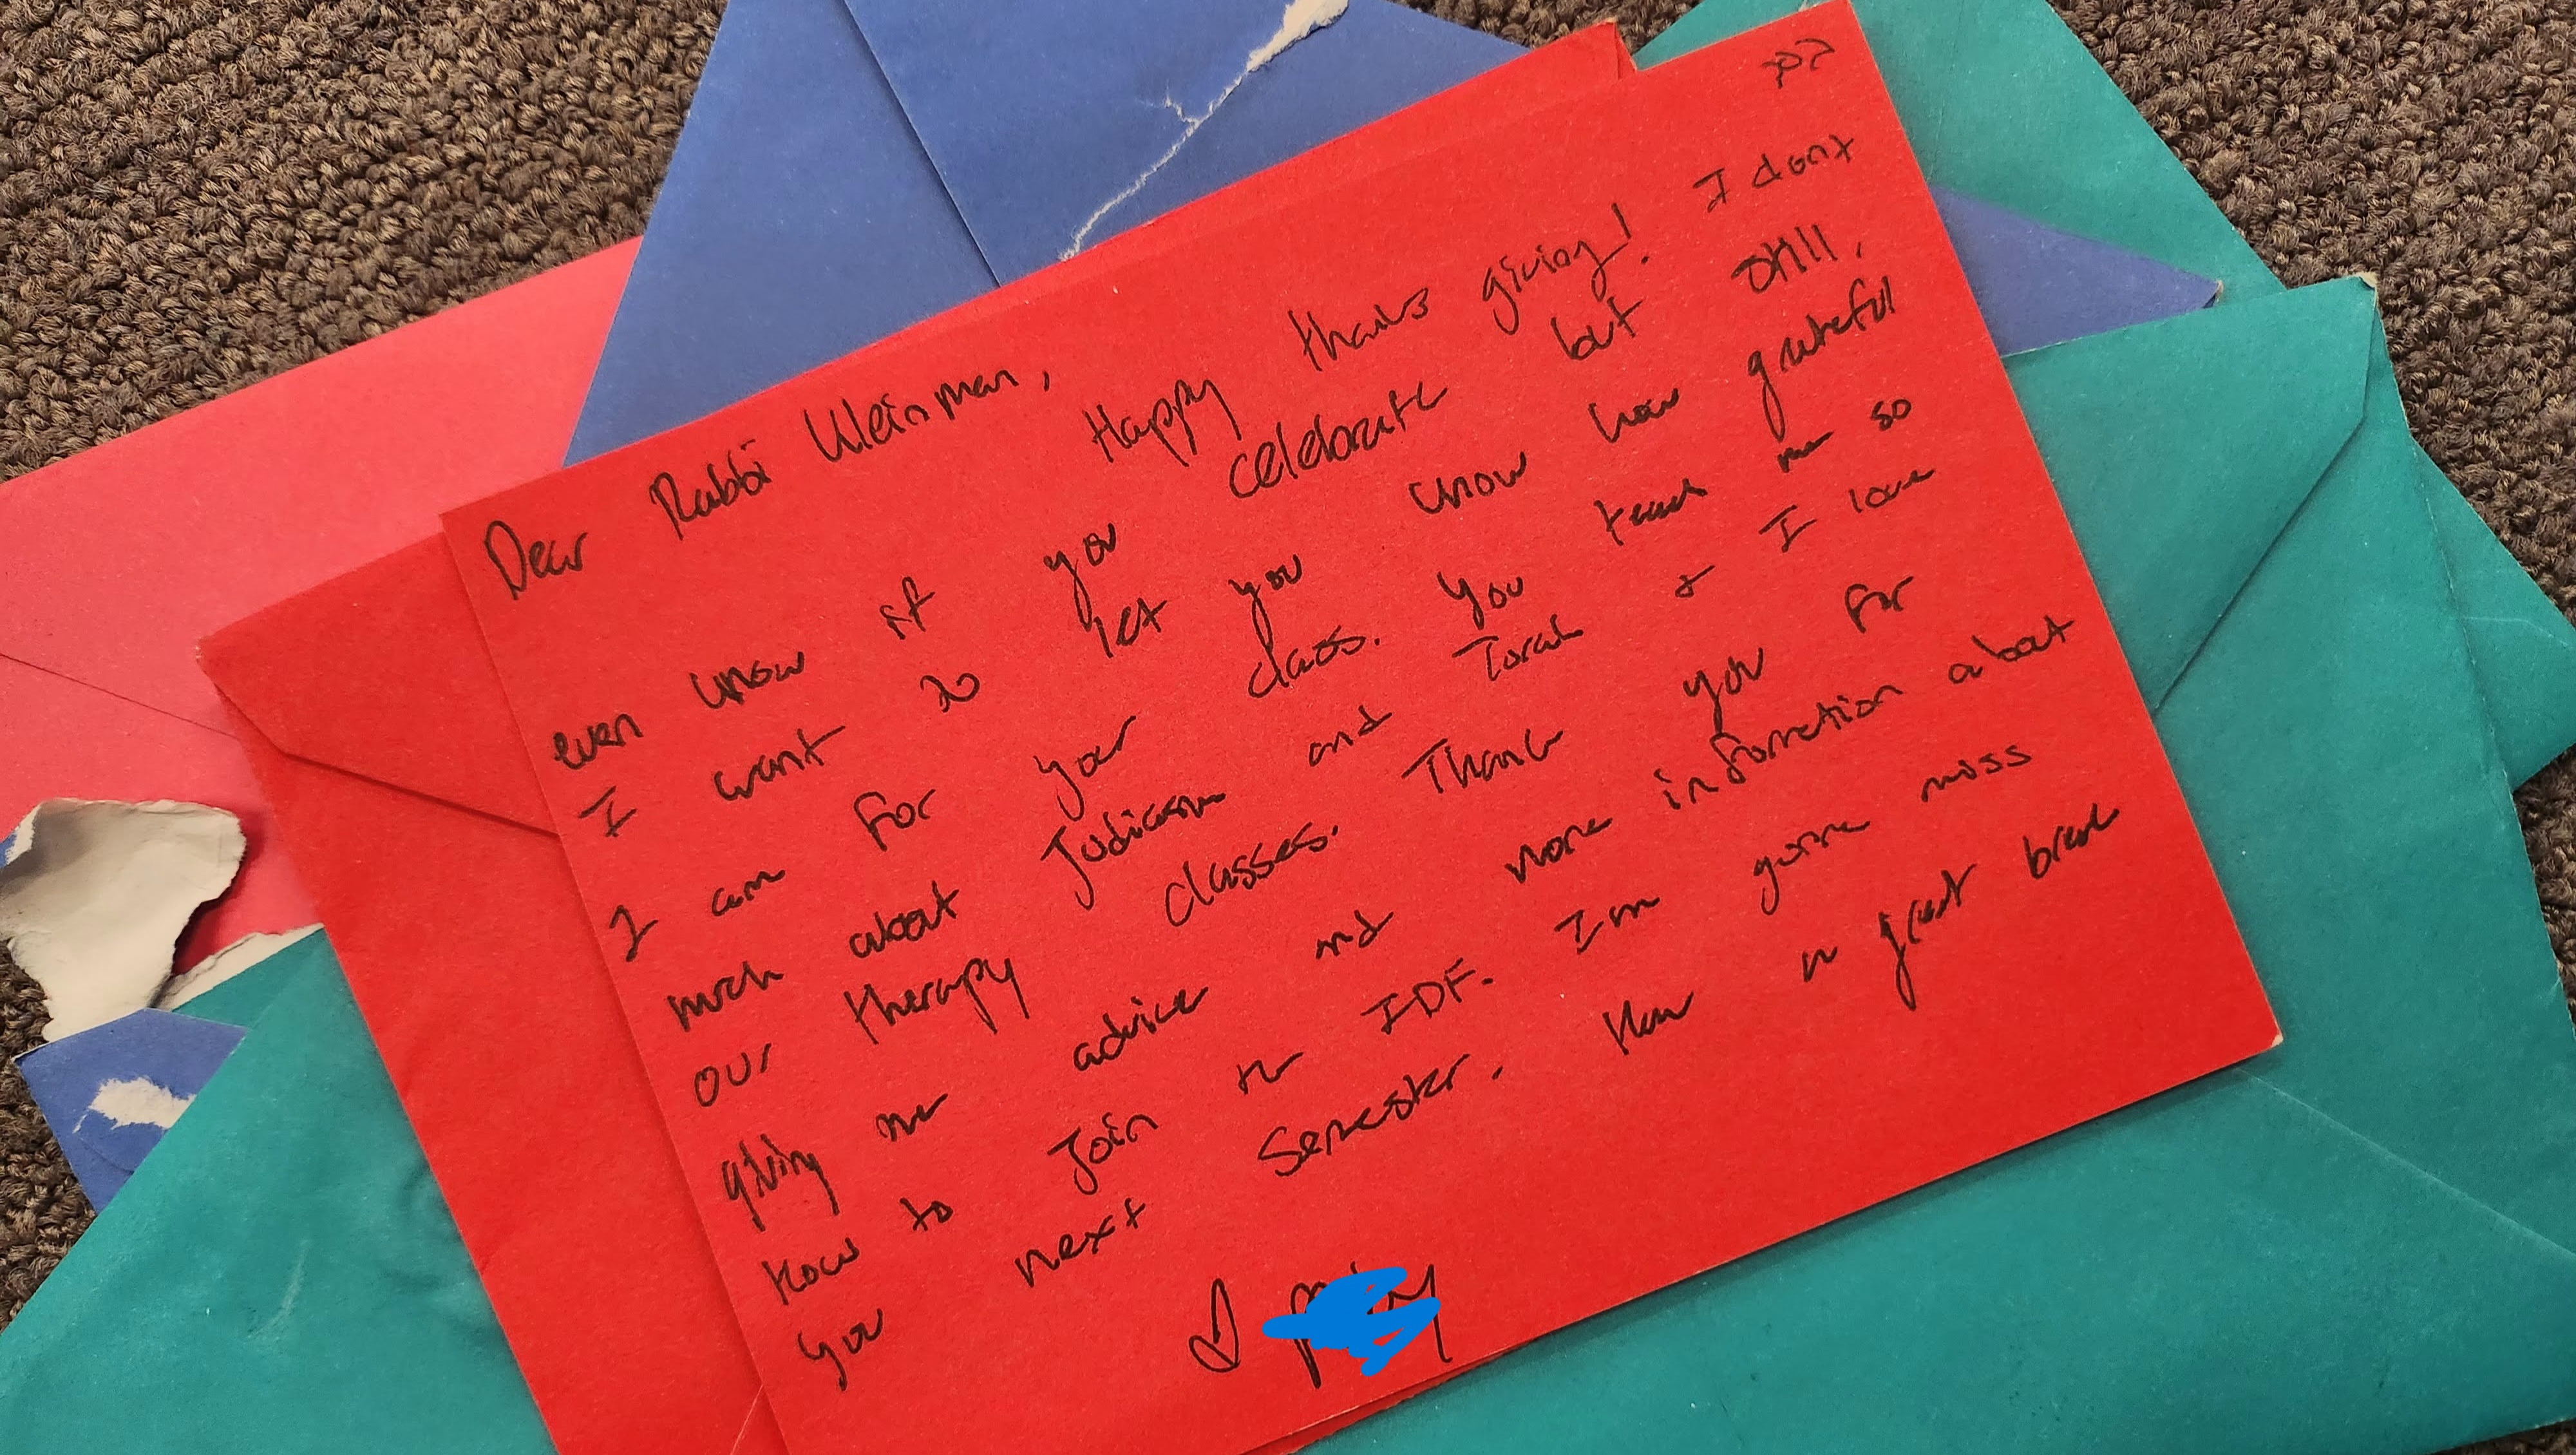 בס"ד
Dear Rabbi Kleinman,
Happy thanks giving! I dont
even know if you celebrate but still,
I want to let you know how grateful
I am for your class. You teach me so
much about Judiasm and Torah + I love
our therapy classes. Thank you for
giving me advice and more information about
how to Join the IDF. Im gonna miss
you next Semester. Have a great break
♡